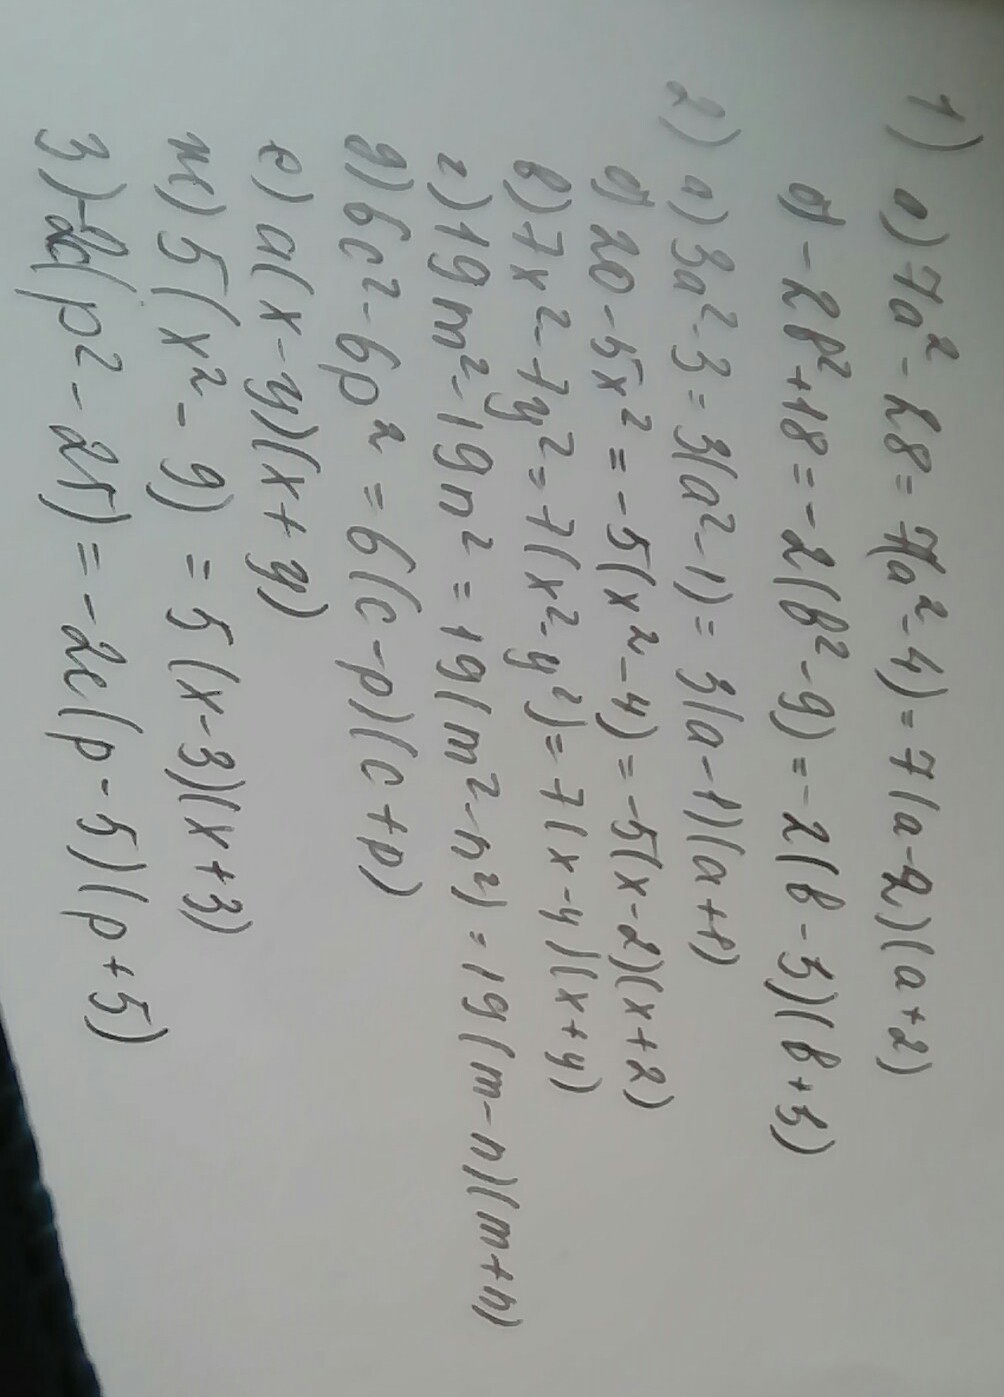 1) а) 7a² - 28 = 7(a² - 4) = 7(a-2)(a+2)
б) -2b² + 18 = -2(b² - 9) = -2(b-3)(b+3)
2) а) 3a² - 3 = 3(a² - 1) = 3(a-1)(a+1)
б) 20 - 5x² = -5(x² - 4) = -5(x-2)(x+2)
в) 7x² - 7y² = 7(x² - y²) = 7(x-y)(x+y)
г) 19m² - 19n² = 19(m² - n²) = 19(m-n)(m+n)
д) 6c² - 6p² = 6(c-p)(c+p)
е) a(x-y)(x+y)
ж) 5(x² - 9) = 5(x-3)(x+3)
з) -2c(p² - 25) = -2c(p-5)(p+5)